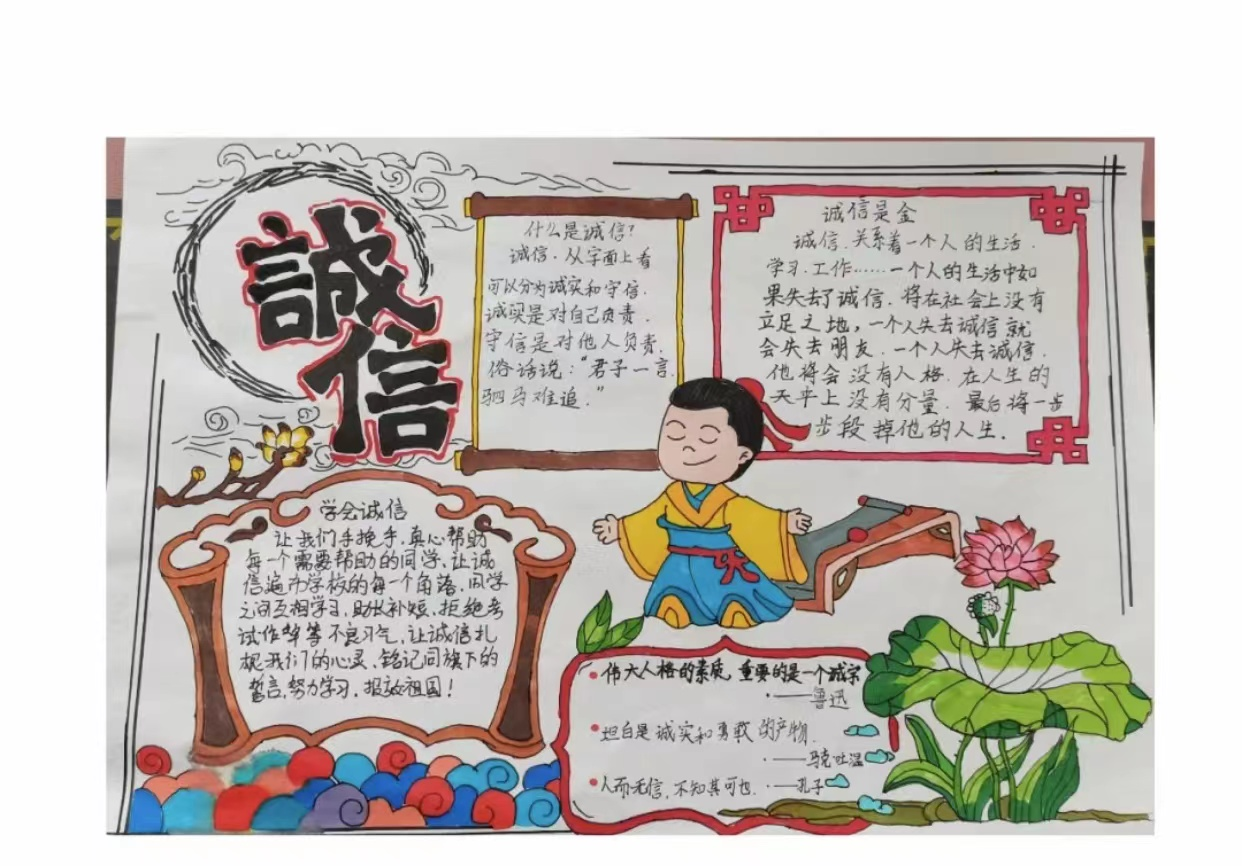 誠
信
什么是诚信?
诚信.从字面上看
可以分为诚实和守信.
诚实是对自己负责.
守信是对他人负责.
俗话说:"君子一言.
驷马难追."
诚信是金
诚信.关系着一个人的生活.
学习.工作……一个人的生活中如
果失去了诚信.将在社会上没有
立足之地,一个人失去诚信就
会失去朋友.一个人失去诚信.
他将会没有人格.在人生的
天平上没有分量.最后将一步
步段掉他的人生.
学会诚信
让我们手挽手.真心帮助
每一个需要帮助的同学.让诚
信遍布学校的每一个角落.同学
之间互相学习.助长补短.拒绝考
试作弊等不良习气.让诚信扎
根我们的心灵.铭记同旗下的
誓言.努力学习.报效祖国!
·伟大人格的素质,重要的是一个诚字
·——鲁迅
·坦白是诚实和勇敢的产物.
·——马克吐温
·人而无信,不知其可也.·—孔子